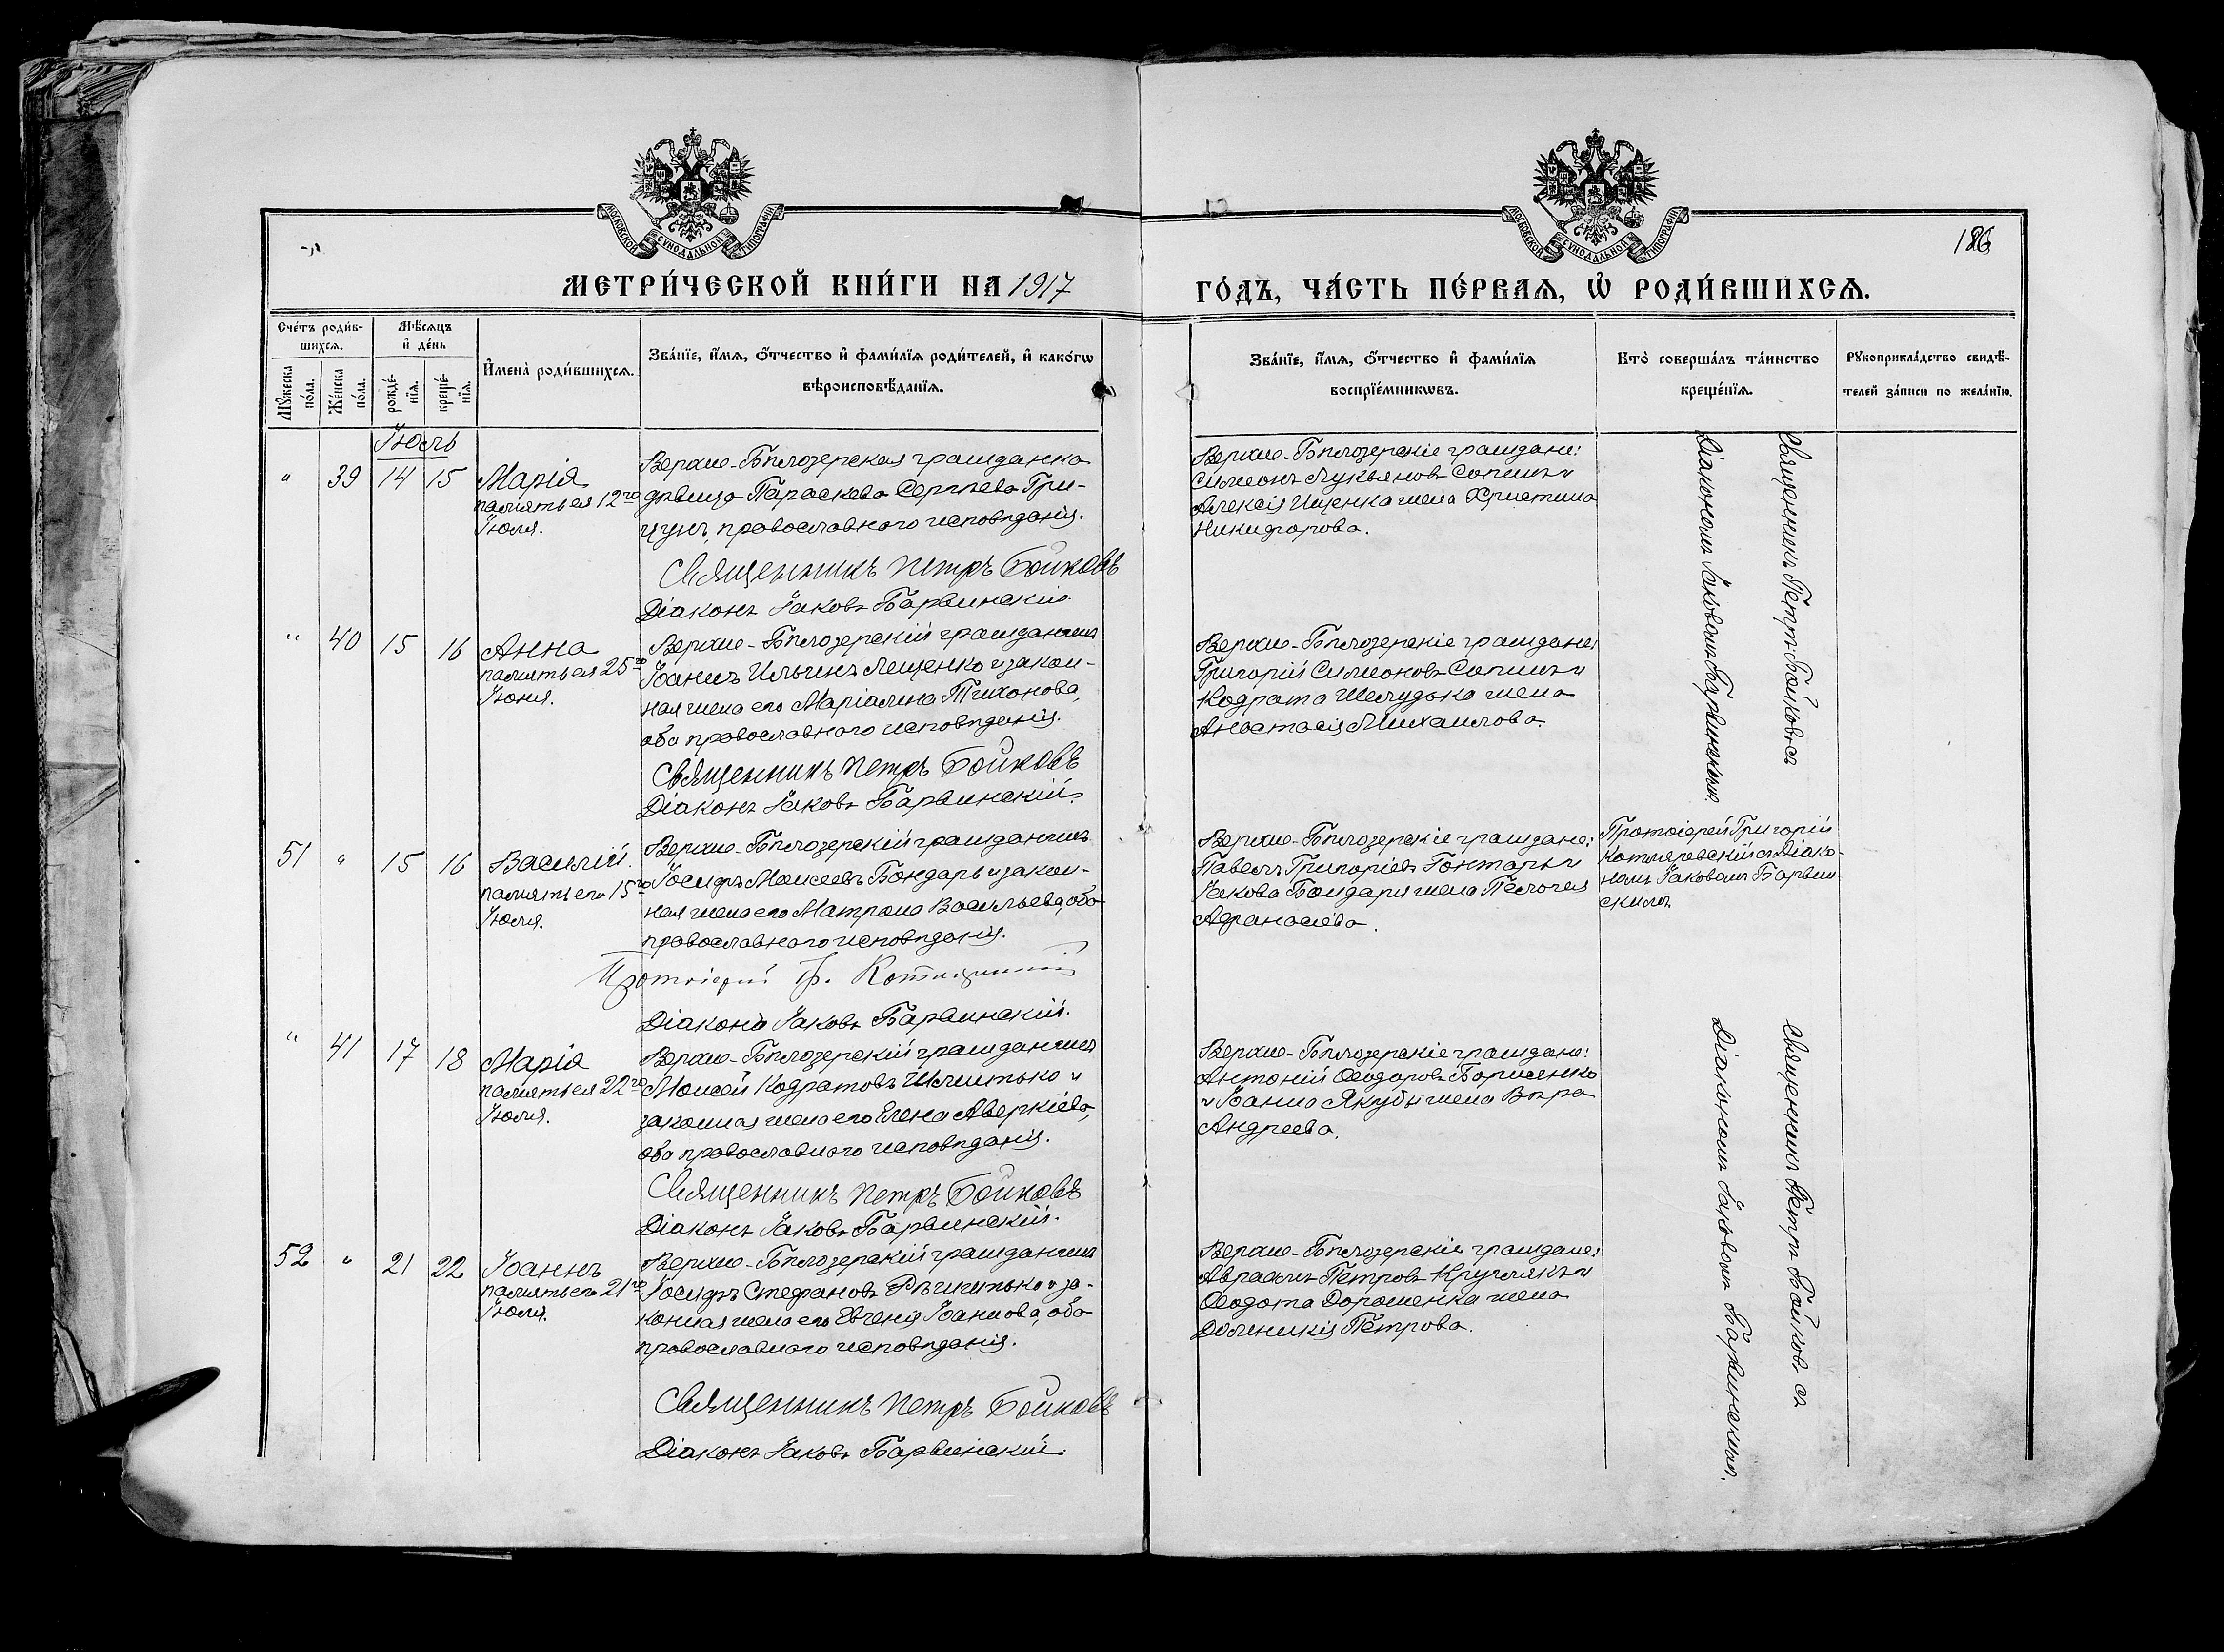 МОСКОВСКОЙ СУНОДАЛЬНОЙ ТИПОГРАФІИ
МОСКОВСКОЙ СУНОДАЛЬНОЙ ТИПОГРАФІИ
186
МЕТРИ́ЧЕСКОЙ КНИ́ГИ НА 1917
ГО́ДЪ, ЧА́СТЬ ПЕ́РВАѦ, Ѡ҆ РОДИ́ВШИХСѦ.
Сче́тъ роди́в-
шихсѧ.
Мꙋ́жеска по́ла.
Же́нска по́ла.
Мѣ́сѧцъ
и҆ де́нь
рожде́-
нїѧ.
креще́-
нїѧ.
И҆мена̀ роди́вшихсѧ.
Зва́нїе, и҆́мѧ, ѻ҆́тчество и҆ фами́лїѧ роди́телей, и҆ како́гѡ
вѣроисповѣ́данїѧ.
Зва́нїе, и҆́мѧ, ѻ҆́тчество и҆ фами́лїѧ
воспрїе́мникѡвъ.
Кто̀ соверша́лъ та́инство
креще́нїѧ.
Рꙋкоприкла́дство свидѣ́-
телей за́писи по жела́нїю.
Іюль
" 39 14 15
Марія
память ея 12го
Іюля.
Верхне-Бѣлозерская гражданка
дѣвица Параскева Сергѣева Гри-
цунъ, православнаго исповѣданія.
Священникъ Петръ Бойковъ
Діаконъ Іаковъ Барвинскій.
Верхне-Бѣлозерскіе граждане:
Симеонъ Лукьяновъ Сопинъ и
Алексія Ищенка жена Христина
Никифорова.
Священникъ Петръ Бойковъ съ
Діакономъ Іаковомъ Барвинскимъ.
" 40 15 16
Анна
память ея 25го
Іюня.
Верхне-Бѣлозерскій гражданинъ
Іоаннъ Ильинъ Лещенко и закон-
ная жена его Маріамна Тихонова,
оба православнаго исповѣданія.
Священникъ Петръ Бойковъ
Діаконъ Іаковъ Барвинскій.
Верхне-Бѣлозерскіе граждане:
Григорій Симеоновъ Сопинъ и
Кодрата Шелудька жена
Анастасія Михаилова.
51 " 15 16
Василій.
память его 15го
Іюля.
Верхне-Бѣлозерскій гражданинъ
Іосифъ Моисеевъ Бондарь и закон-
ная жена его Матрона Васильева, оба
православнаго исповѣданія.
Протоіерей Гр. Котляревскій
Діаконъ Іаковъ Барвинскій.
Верхне-Бѣлозерскіе граждане:
Павелъ Григоріевъ Гонтарь и
Іакова Бондаря жена Пелагея
Афанасіева.
Протоіерей Григорій
Котляревскій съ Діако-
номъ Іаковомъ Барвин
скимъ.
" 41 17 18
Марія
память ея 22го
Іюля.
Верхне-Бѣлозерскій гражданинъ
Моисей Кодратовъ и
законная жена его Елена Аверкіева,
оба православнаго исповѣданія.
Священникъ Петръ Бойковъ
Діаконъ Іаковъ Барвинскій.
Верхне-Бѣлозерскіе граждане:
Антоній Ѳеодоровъ Борисенко
и Іоанна Якубы жена Вѣра
Андреева.
Священникъ Петръ Бойковъ съ
Діакономъ Іаковомъ Барвинскимъ.
52 " 21 22
Іоаннъ
память его 21го
Іюля.
Верхне-Бѣлозерскій гражданинъ
Іосифъ Стефановъ и за-
конная жена его Евгенія Іоаннова, оба
православнаго исповѣданія.
Священникъ Петръ Бойковъ
Діаконъ Іаковъ Барвинскій.
Верхне-Бѣлозерскіе граждане:
Авраамъ Петровъ Круглякъ и
Ѳеодота Дорошенка жена
Домникія Петрова.